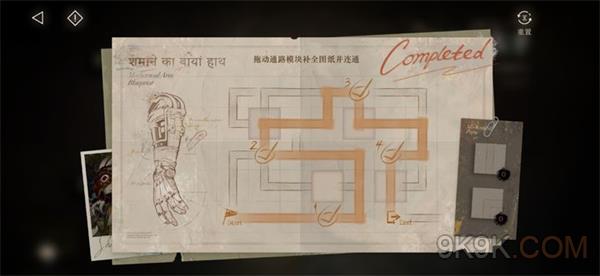 重置
शमाने का बायां हाथ
拖动通路模块补全图纸并连通
Completed
Mechanical Arm
Blueprint
3
2
4
1
Start
End
0
0
9K9K.COM